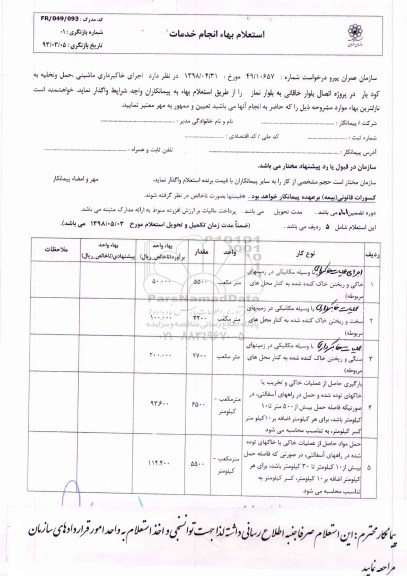 کد مدرک : FR/049/093
شماره بازنگری : ۰۱
تاریخ بازنگری : ۹۳/۰۳/۰۵
استعلام بهاء انجام خدمات
سازمان عمران پیرو درخواست شماره : ۴۹/۱۰۶۵۷ مورخ : ۱۳۹۸/۰۴/۳۱ در نظر دارد اجرای خاکبرداری ماشینی ،حمل وتخلیه به
کود بار در پروژه اتصال بلوار خاقانی به بلوار نماز را از طریق استعلام بهاء به پیمانکاران واجد شرایط واگذار نماید. خواهشمند است
نازلترین بهاء موارد مشروحه ذیل را که حاضر به انجام آنها می باشید تعیین و ممهور به مهر معتبر نمایید.
شرکت / پیمانکار : نام و نام خانوادگی مدیر :
شماره ثبت : کد ملی / کد اقتصادی :
آدرس پیمانکار : تلفن ثابت و همراه :
سازمان در قبول یا رد پیشنهاد مختار می باشد.
سازمان مختار است حجم مشخصی از کار را به سایر پیمانکاران با قیمت برنده استعلام واگذار نماید. مهر و امضاء پیمانکار
کسورات قانونی(بیمه) برعهده پیمانکار خواهد بود . قیمتها بصورت ناخالص در نظر گرفته شوند.
دوره تضمین می باشد . مدت تحویل می باشد . پرداخت مالیات بر ارزش افزوده منوط به ارائه مدارک مثبته می باشد.
این استعلام شامل ۵ ردیف می باشد . (ضمناً مدت زمان تکمیل و تحویل استعلام مورخ ۱۳۹۸/۰۵/۰۳ می باشد).
ردیف نوع کار واحد مقدار بهاء واحد برآورد(ناخالص_ریال) بهاء واحد پیشنهادی(ناخالص_ریال) ملاحظات
۱ با وسیله مکانیکی در زمینهای
خاکی و ریختن خاک کنده شده به کنار محل های
مربوطه) متر مکعب ۵۵۰۰ ۵۰،۰۰۰
۲ عملیات خاکبرداری با وسیله مکانیکی در زمینهای
سخت و ریختن خاک کنده شده به کنار محل های
مربوطه) متر مکعب ۴۲۰۰ ۱۰۰،۰۰۰
۳ عملیات خاکبرداری با وسیله مکانیکی در زمینهای
سنگی و ریختن خاک کنده شده به کنار محل های
مربوطه) متر مکعب ۲۷۰۰ ۲۰۰،۰۰۰
۴ بارگیری حاصل از عملیات خاکی و تخریب یا
خاکهای توده شده و حمل در راههای آسفالتی، در
صورتیکه فاصله حمل بیش از ۵۰۰ متر تا ۱۰
کیلومتر باشد، برای هر کیلومتر اضافه بر ۱۰ کیلو متر
کسر کیلومتر، به تناسب محاسبه می شود مترمکعب - کیلومتر ۶۵۰۰ ۹۳،۶۰۰
۵ حمل مواد حاصل از عملیات خاکی یا خاکهای توده
شده در راههای آسفالتی، در صورتی که فاصله حمل
بیش از ۱۰ کیلومتر تا ۳۰ کیلومتر باشد، برای هر
کیلومتر اضافه بر ۱۰ کیلومتر، کسر کیلومتر به
تناسب محاسبه می شود. مترمکعب - کیلومتر ۵۵۰۰ ۱۱۴،۴۰۰
ParsNamadData
پیمانکار محترم : این استعلام صرفا جنبه اطلاع رسانی داشته لذا جهت توانسنجی و اخذ استعلام به واحد امور قراردادهای سازمان
مراجعه نمایید